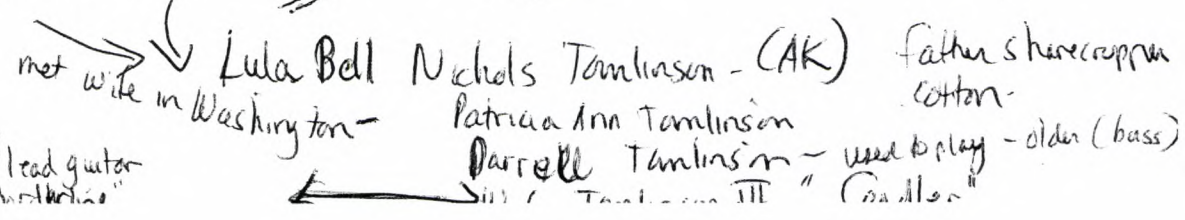 met wife in Washington-
Lula Bell Nichols Tomlinson - (AK)
father sharecropper
cotton-
Patricia Ann Tomlinson
Darrell Tomlinson - used to play - older (bass)
lead guitar
Tomlinson III "